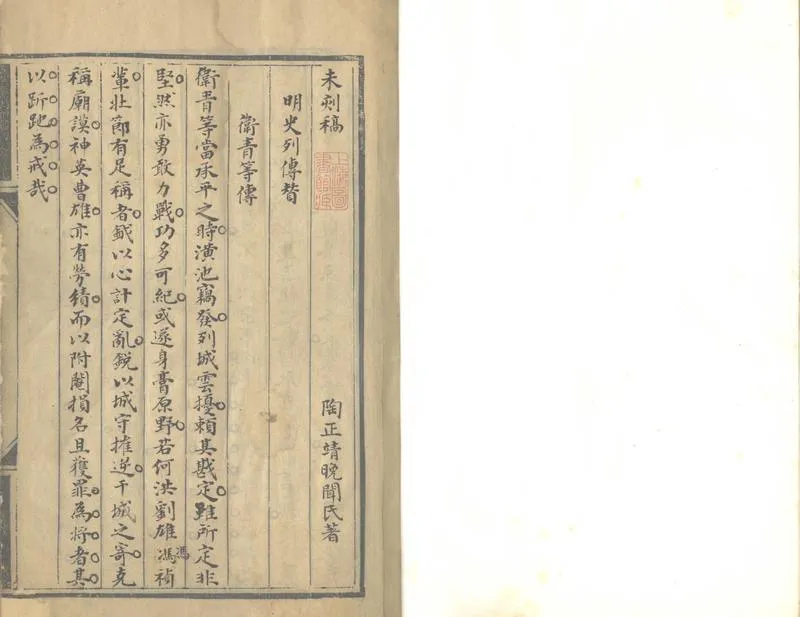 未刻稿
陶正靖晚聞氏著
上海圖書館藏
明史列傳贊
衛青等傳
衛青等當承平之時。潢池竊發。列城雲擾。賴其戡定。雖所定非
堅。然亦勇敢力戰。功多可紀。或遂身膏原野。若何洪劉雄馮禎
馮
輩。壯節有足稱者。鉞以心計定亂。銳以城守摧逆。干城之寄。克
稱廟謨。神英曹雄。亦有勞績。而以附閹損名且獲罪。為。將。者。其。
以。跅。跎。為。戒。哉。